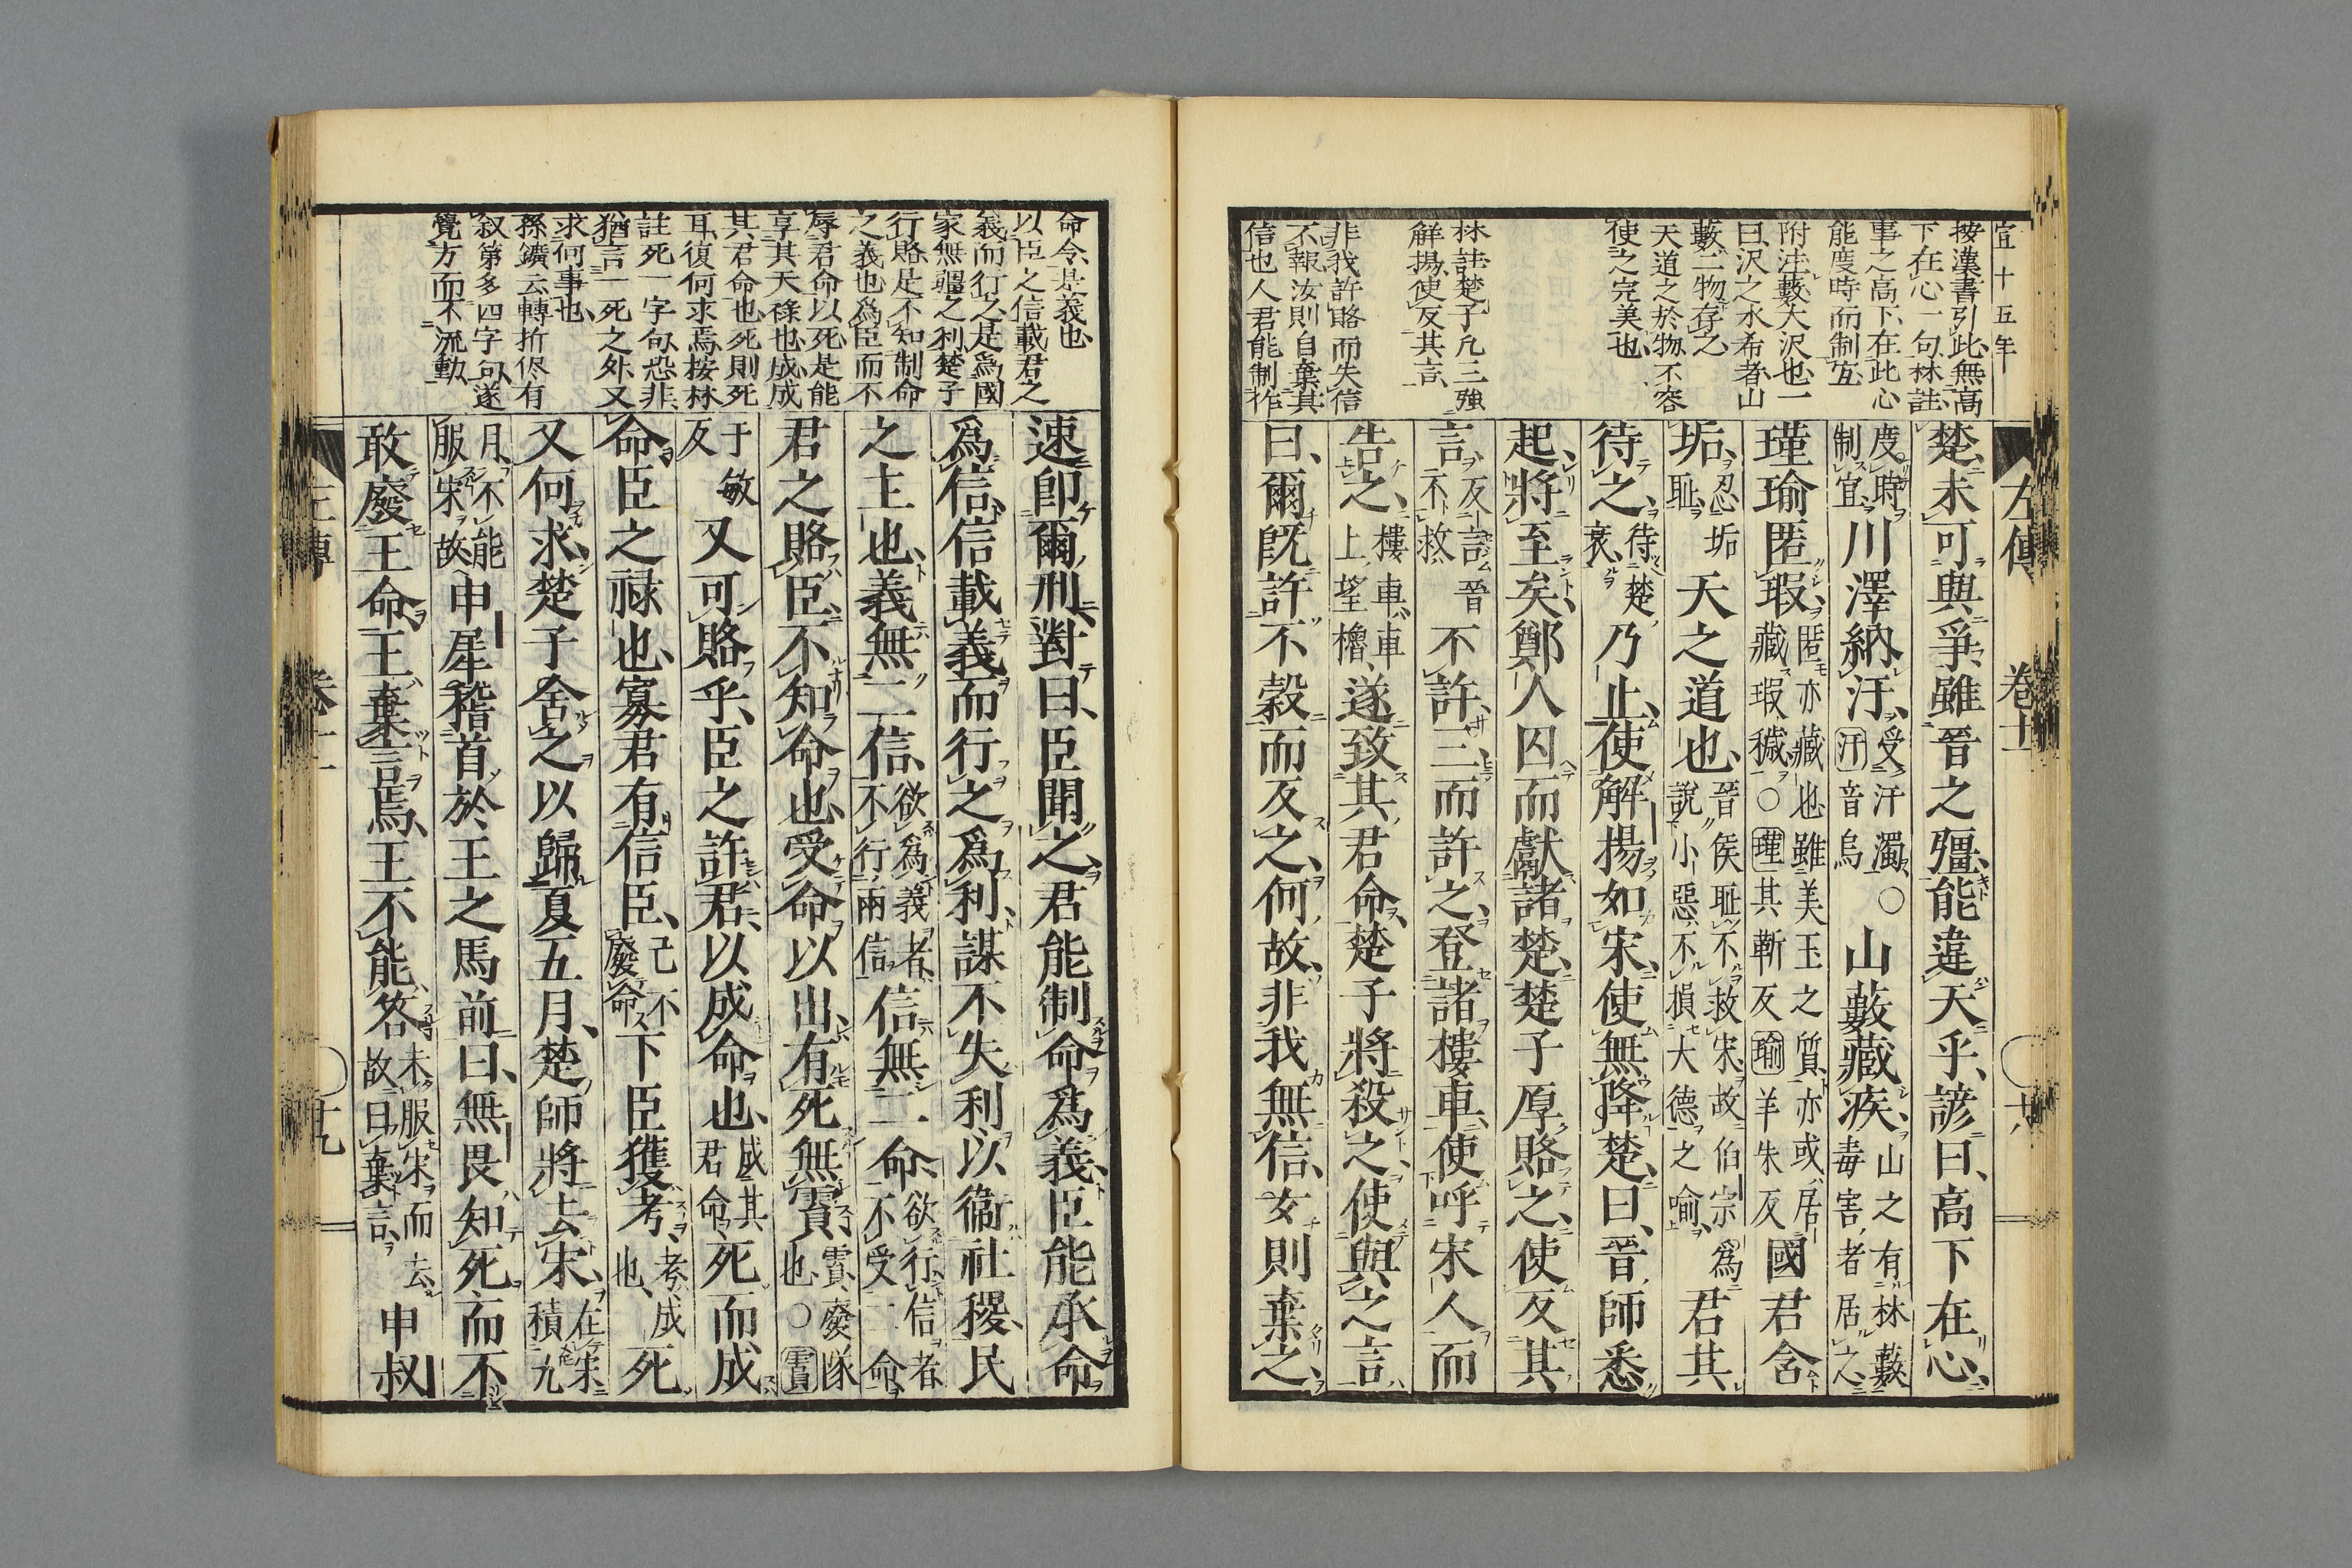 宣十五年
按漢書引此無高
下在心一句林註
事之高下在此心
能度時而制宜
附注藪大沢也一
曰沢之水希者山
藪二物存之
天道之於物不容
使之完美也
林註楚子凡三強
解揚使反其言
非我許賂而失信
不報汝則自棄其
信也人君能制作
左傳 卷十一
楚、未可與爭、雖晉之彊、能違天乎、諺曰、高下在心、
度時制宜 川澤納汙、受汙濁、汙音烏 ○ 山藪藏疾、山之有林藪毒害者居之
瑾瑜匿瑕、匿亦藏也雖美玉之質亦或居藏瑕穢○瑾其靳反瑜羊朱反 國君含
垢、忍垢耻 天之道也、晉侯耻不救宋故伯宗爲說小惡不損大德之喻 君其
待之、待楚衰 乃止、使解揚如宋、使無降楚、曰、晉師悉
起、將至矣、鄭人囚而獻諸楚、楚子厚賂之、使反其
言、反言晉不救 不許、三而許之、登諸樓車、使呼宋人而
告之、樓車車上望櫓 遂致其君命、楚子將殺之、使與之言
曰、爾旣許不穀而反之、何故、非我無信、女則棄之、
命令是義也
以臣之信載君之
義而行之是爲國
家無疆之利楚子
行賂是不知制命
之義也爲臣而不
辱君命以死是能
享其天祿也成成
其君命也死則死
耳復何求焉按林
註死一字句恐非
猶言一死之外又
求何事也
孫鑛云轉折侭有
叙第多四字句遂
覺方而不流動
速卽爾刑、對曰、臣聞之、君能制命爲義、臣能承命
爲信、信載義而行之爲利、謀不失利以衞社稷、民
之主也、義無二信、欲爲義者不行兩信 信無二命、欲行信者不受二命
君之賂臣、不知命也、受命以出、有死無霣、霣廢隊也○霣
于敏反 又可賂乎、臣之許君、以成命也、成其君命 死而成
命、臣之禄也、寡君有信臣、己不廢命 下臣獲考、考成也 死
又何求、楚子舍之以歸夏五月、楚師將去宋、在宋積九
月、不能服宋故 申犀稽首於王之馬前曰、無畏知死而不
敢廢王命、王棄言焉、王不能答、未服宋而去故曰棄言 申叔